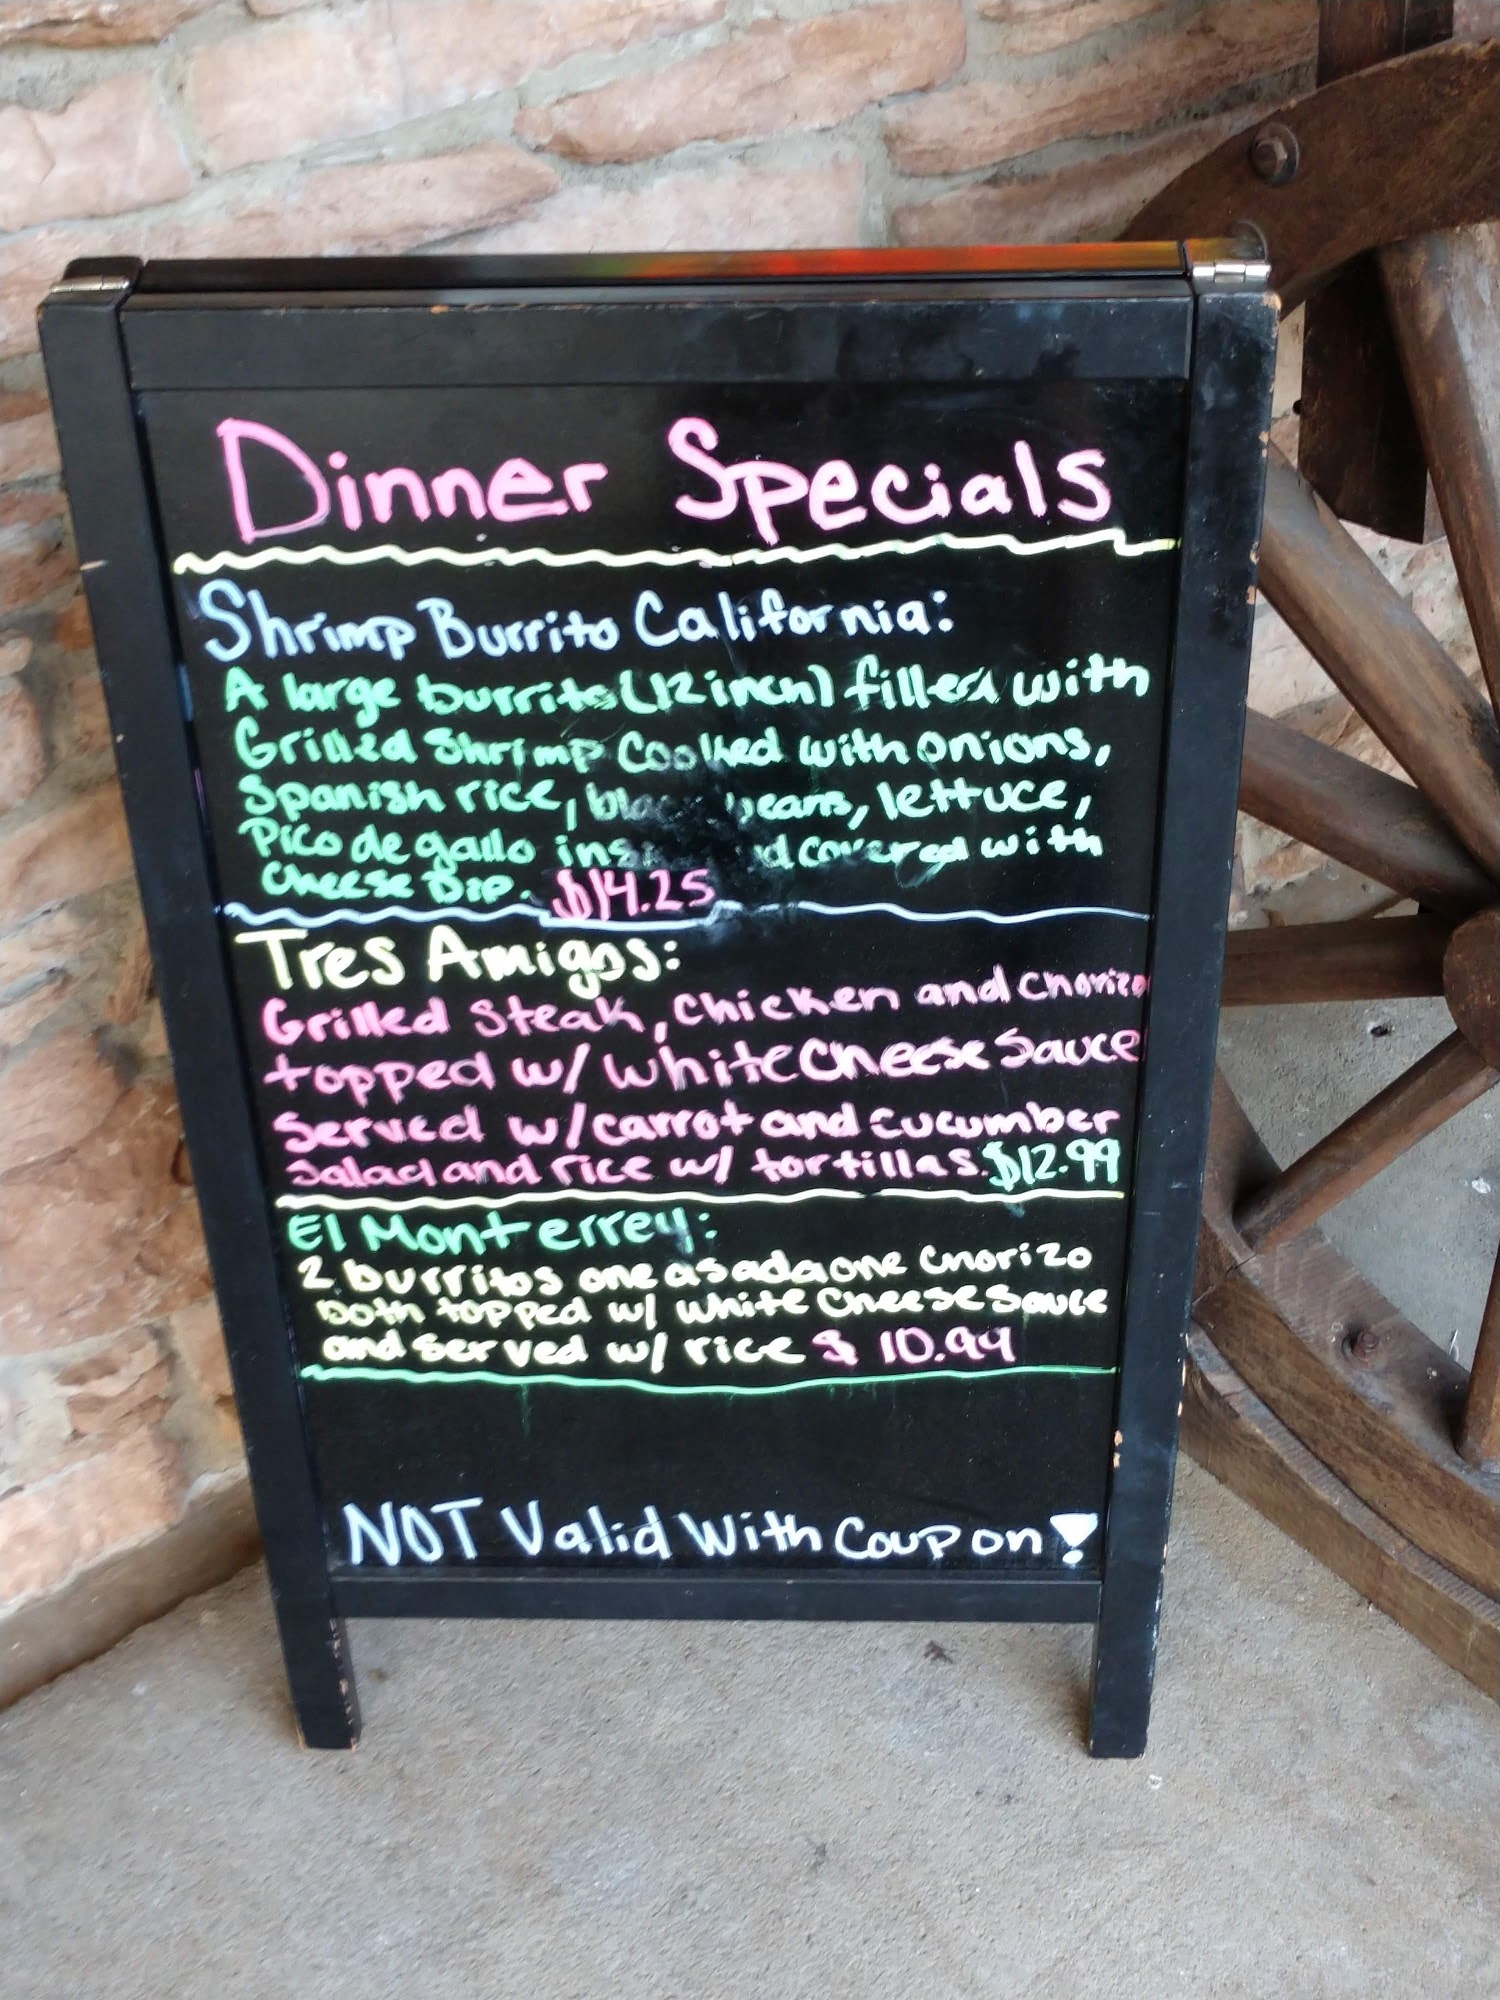 Dinner Specials
Shrimp Burrito California:
A large burrito (12 inch) filled with
Grilled Shrimp Cooked with onions,
Spanish rice, black beans, lettuce,
Pico de gallo covered with
Cheese Dip. $14.25
Tres Amigos:
Grilled Steak, chicken and chorizo
topped w/ white cheese sauce
Served w/ carrot and cucumber
salad and rice w/ tortillas. $12.99
El Monterrey:
2 burritos one asada one chorizo
both topped w/ white cheese sauce
and served w/ rice $ 10.99
NOT Valid With Coupon!